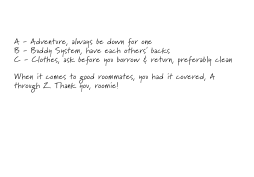 A - Adventure, always be down for one
B - Buddy System, have each others' backs
C - Clothes, ask before you borrow & return, preferably clean
When it comes to good roommates, you had it covered, A
through Z. Thank you, roomie!